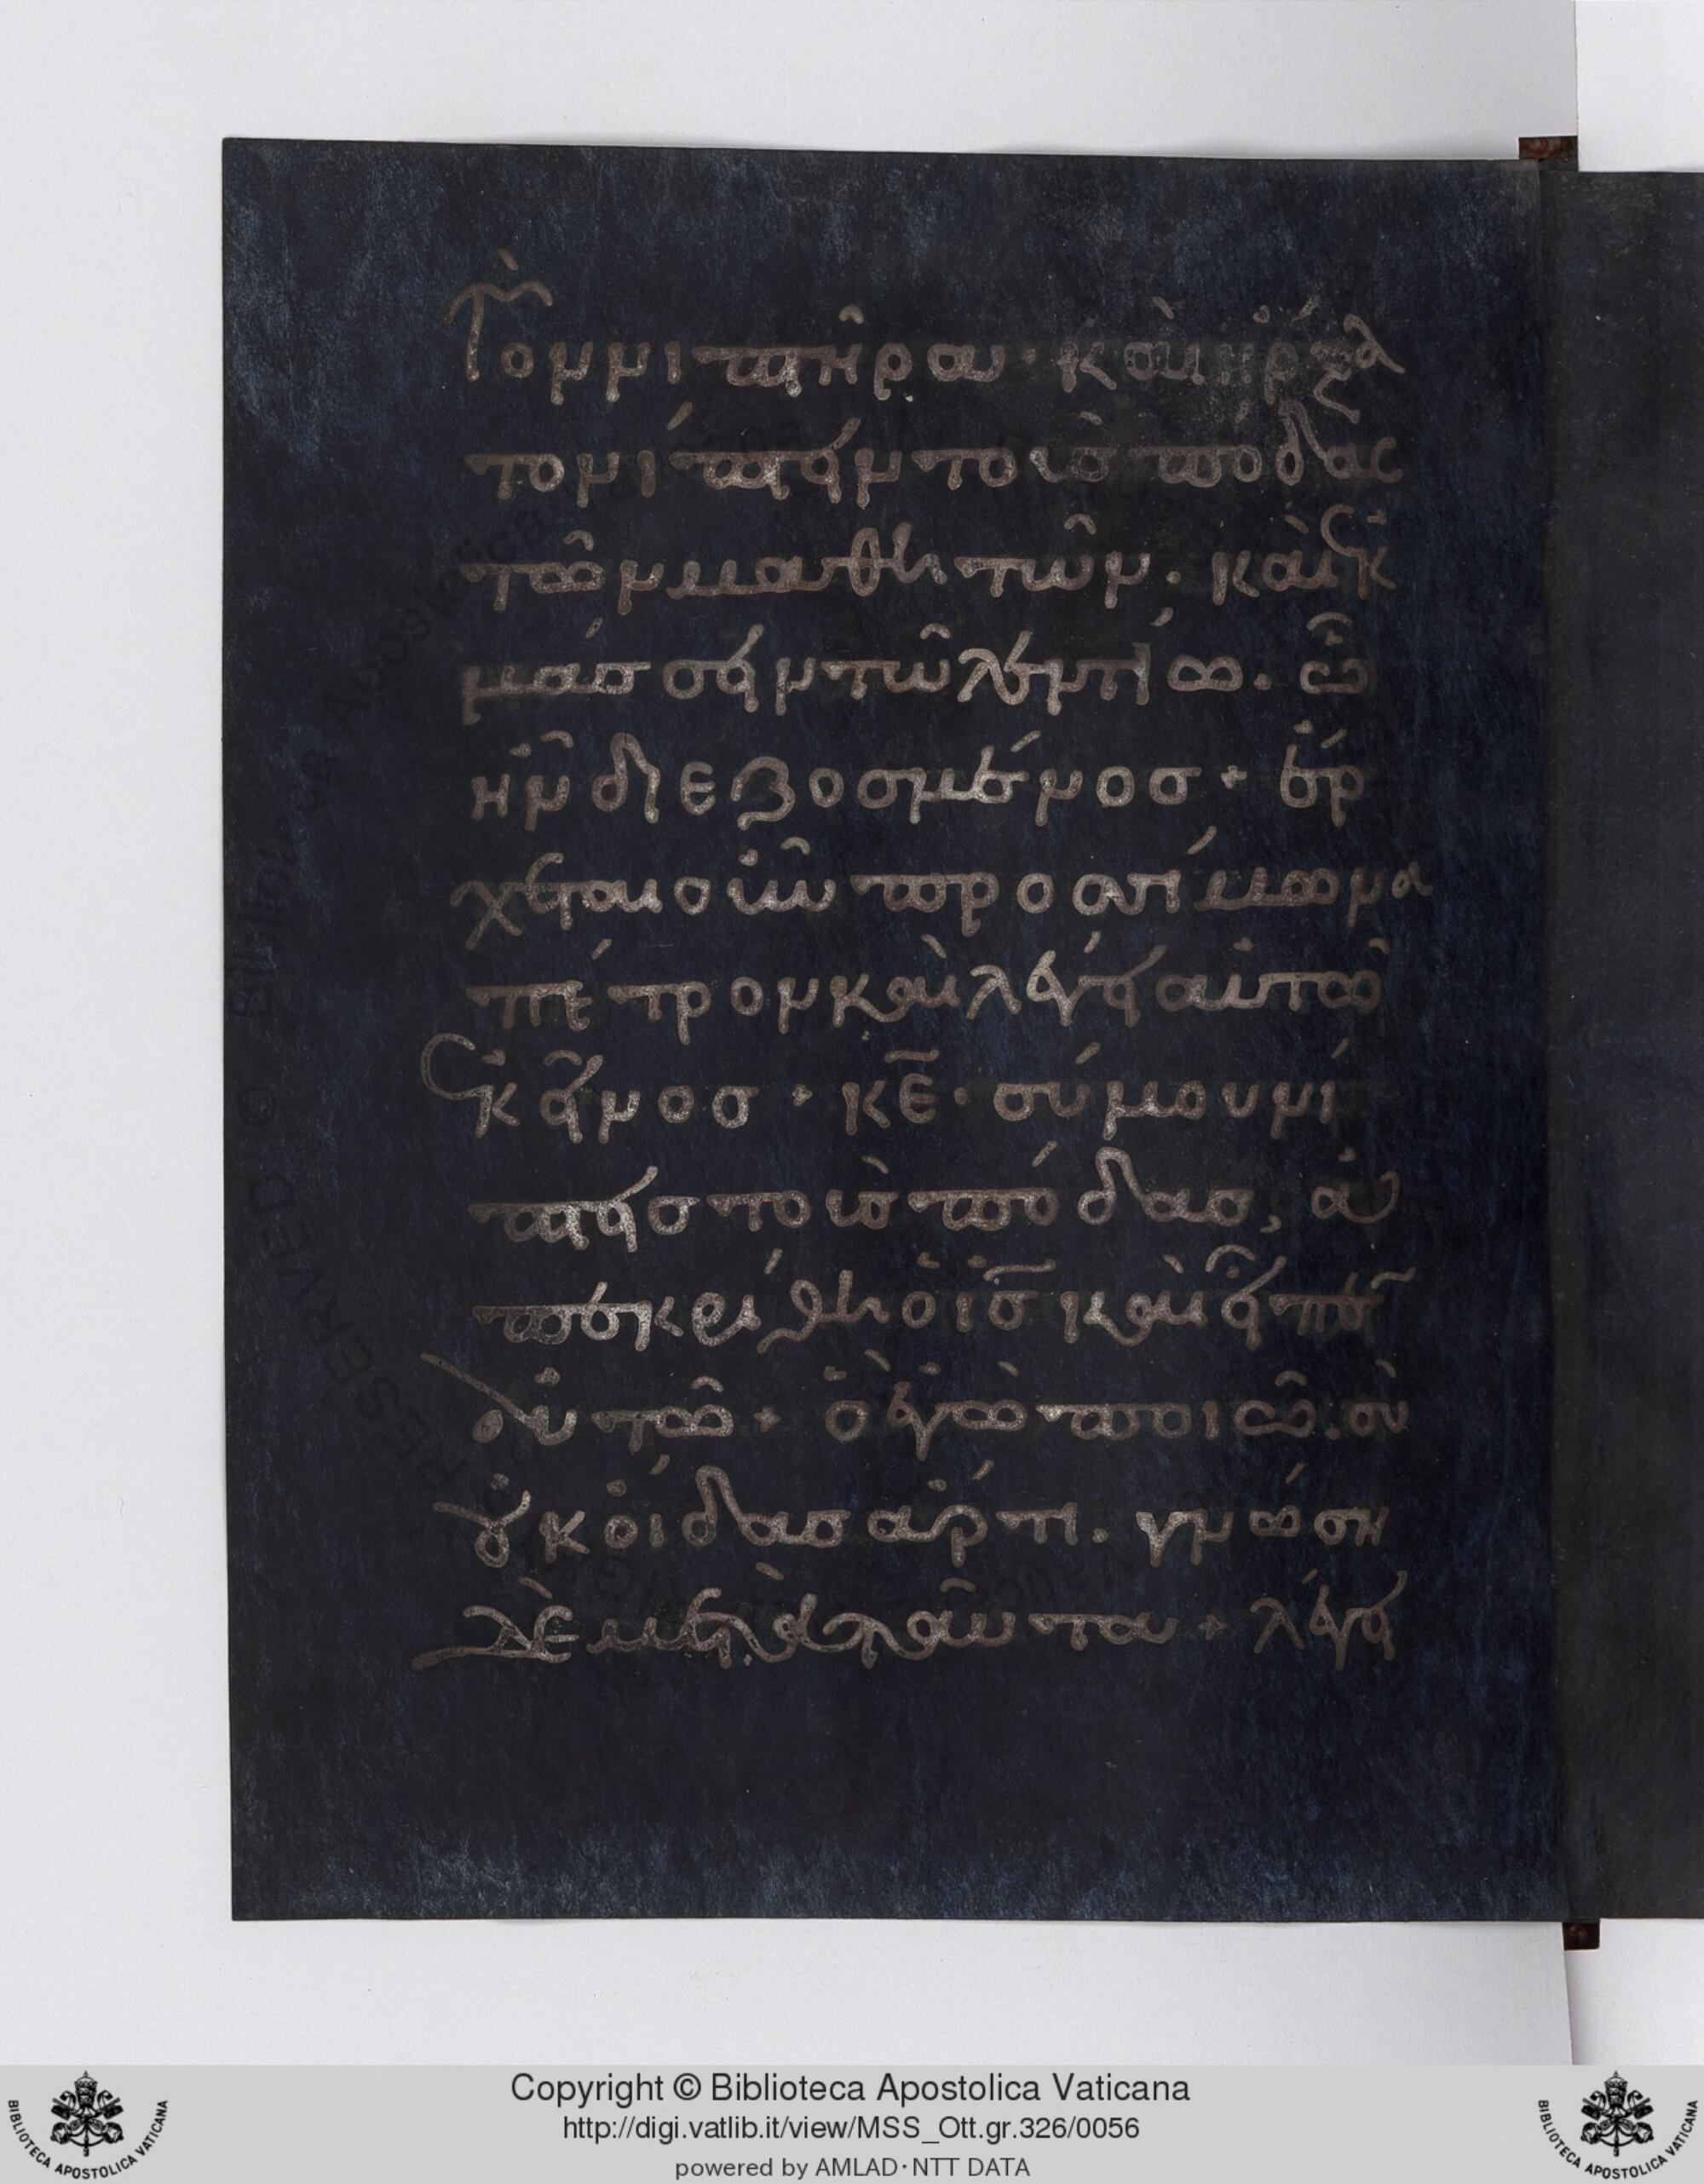 τὸν νιπτῆρα· καὶ ἤρξα
το νίπτειν τοὺς πόδας
τῶν μαθητῶν· καὶ ἐκ
μάσσειν τῶ λεντίω· ὧ
ἦν διεζωσμένος + ἔρ
χεται οὖν προς σίμωνα
πέτρον καὶ λέγει αὐτῶ
ἐκεῖνος + κ̅ε̅· σύ μου νί
πτεις τοὺς πόδας, ἀ
πεκρίθη ὁ ι̅ς̅ καὶ εἶπεν
αὐτῶ + ὃ ἐγὼ ποιῶ· σὺ
οὐκ οἶδας ἄρτι· γνώση
δὲ μετὰ ταῦτα + λέγει
Copyright © Biblioteca Apostolica Vaticana
http://digi.vatlib.it/view/MSS_Ott.gr.326/0056
powered by AMLAD·NTT DATA
BIBLIOTECA APOSTOLICA VATICANA
BIBLIOTECA APOSTOLICA VATICANA